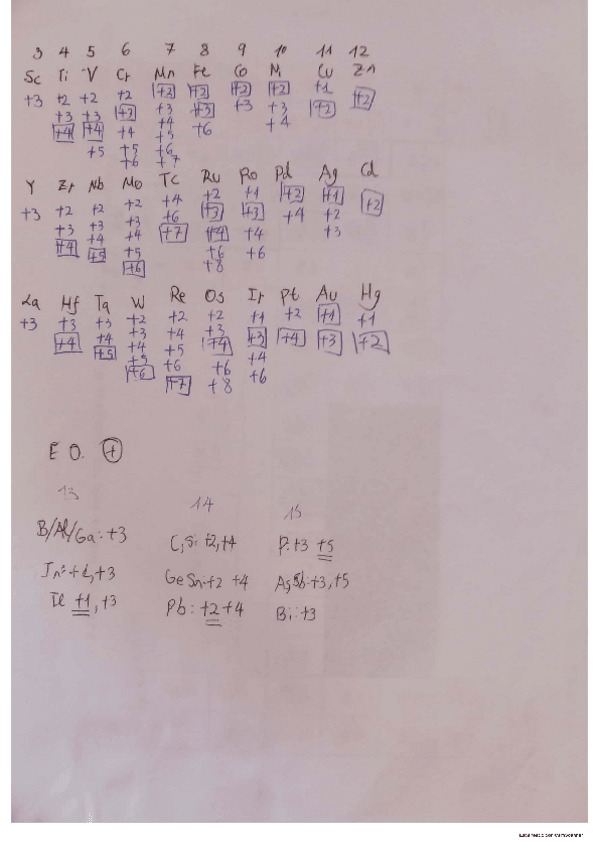 3 4 5 6 7 8 9 10 11 12
Sc Ti V Cr Mn Fe Co Ni Cu Zn
+3 +2 +2 +2 +2 +2 +2 +2 +1 +2
+3 +3 +3 +3 +3 +3 +3 +2
+4 +4 +4 +4 +6 +4
+5 +5 +5
+6 +6
+7
Y Zr Nb Mo Tc Ru Ro Pd Ag Cd
+3 +2 +2 +2 +4 +2 +1 +2 +1 +2
+3 +3 +3 +6 +3 +3 +4 +2
+4 +4 +4 +7 +4 +4 +3
+5 +5 +6 +6
+6 +8
La Hf Ta W Re Os Ir Pt Au Hg
+3 +3 +3 +2 +2 +2 +1 +2 +1 +1
+4 +4 +3 +4 +3 +3 +4 +3 +2
+5 +4 +5 +4 +4
+5 +6 +6 +6
+6 +7 +8
E O. +
13 14 15
B/Al/Ga: +3 C, Si +2, +4 P: +3 +5
In: +1, +3 Ge Sn: +2 +4 As, Sb: +3, +5
Tl +1, +3 Pb: +2 +4 Bi: +3